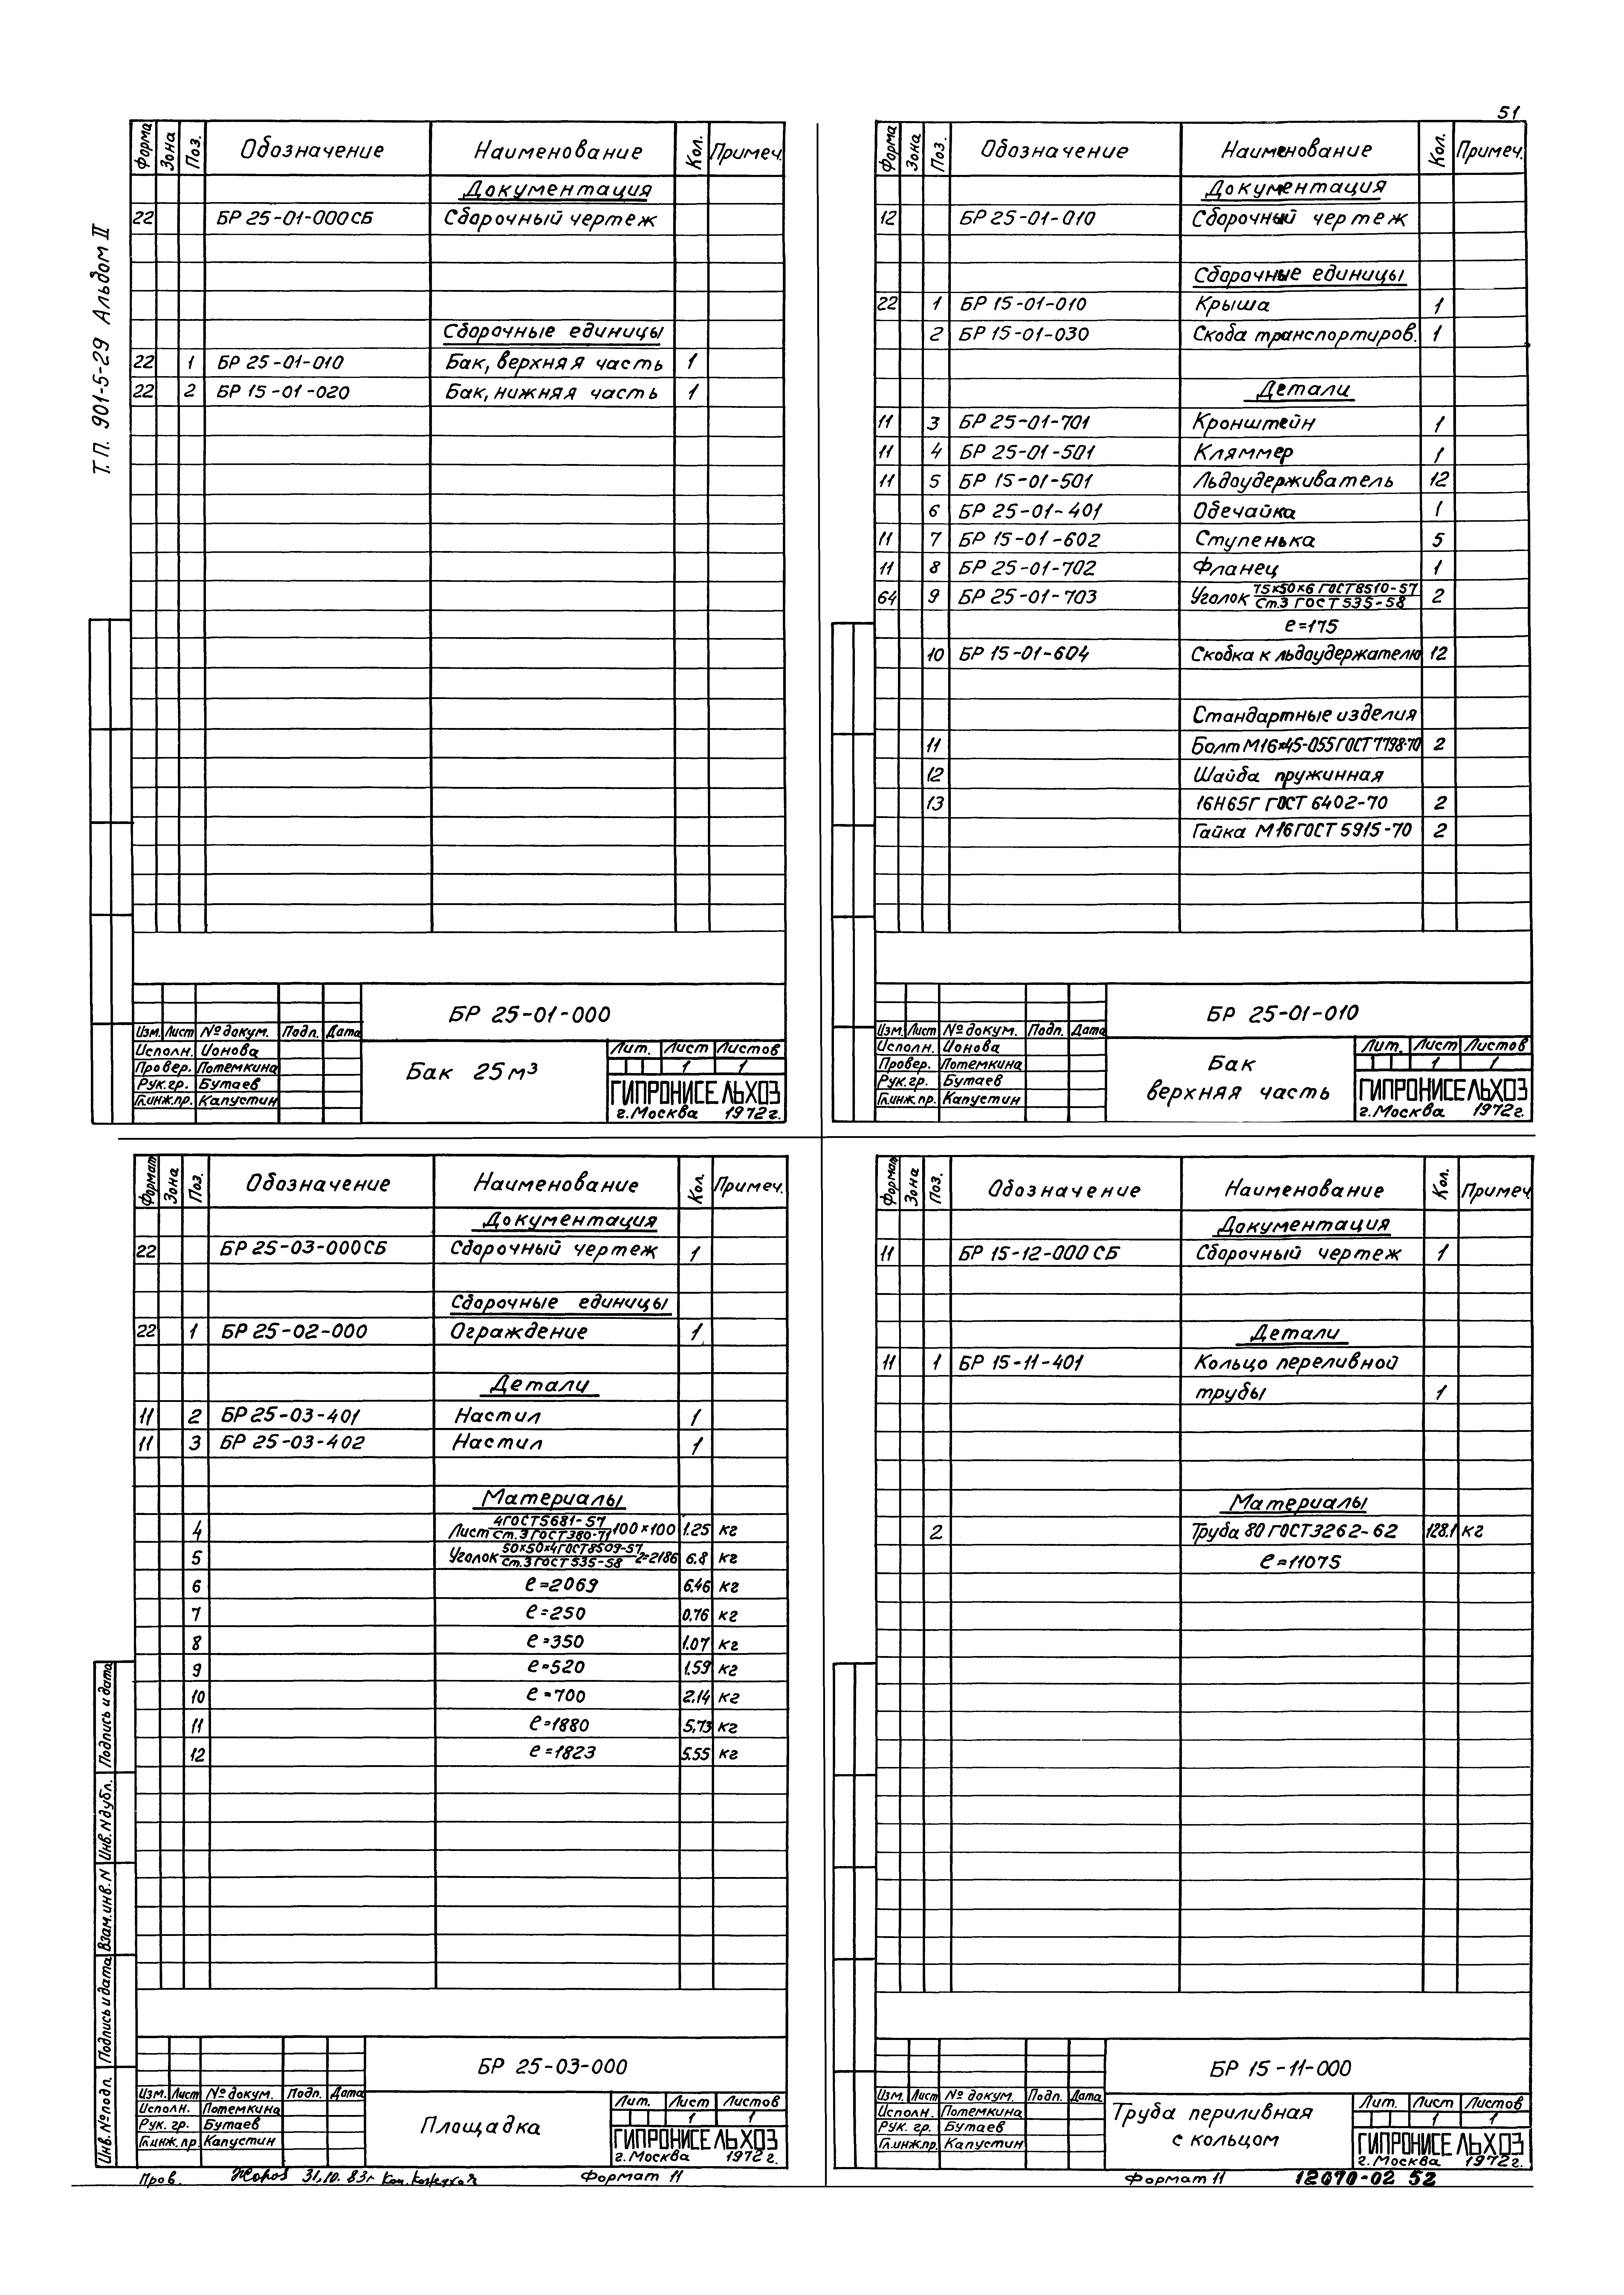 51
Т.П. 901-5-29 Альбом II
Форма Зона Поз. Обозначение Наименование Кол. Примеч.
Документация
22 БР 25-01-000СБ Сборочный чертеж
Сборочные единицы
22 1 БР 25-01-010 Бак, верхняя часть 1
22 2 БР 15-01-020 Бак, нижняя часть 1
БР 25-01-000
Изм. Лист № докум. Подп. Дата
Исполн. Ионова
Провер. Потемкина
Рук.гр. Бутаев
Гл.инж.пр. Капустин
Бак 25м³
Лит. Лист Листов
1 1
ГИПРОНИСЕЛЬХОЗ
г.Москва 1972г.
Форма Зона Поз. Обозначение Наименование Кол. Примеч.
Документация
12 БР 25-01-010 Сборочный чертеж
Сборочные единицы
22 1 БР 15-01-010 Крыша 1
2 БР 15-01-030 Скоба транспортиров. 1
Детали
11 3 БР 25-01-701 Кронштейн 1
11 4 БР 25-01-501 Кляммер 1
11 5 БР 15-01-501 Льдоудерживатель 12
6 БР 25-01-401 Обечайка 1
11 7 БР 15-01-602 Ступенька 5
11 8 БР 25-01-702 Фланец 1
64 9 БР 25-01-703 Уголок 75х50х6 ГОСТ8510-57 2
Ст.3 ГОСТ 535-58
е=175
10 БР 15-01-604 Скобка к льдоудержателю 12
Стандартные изделия
11 Болт М16х45-055ГОСТ7798-70 2
12 Шайба пружинная
13 16Н65Г ГОСТ 6402-70 2
Гайка М16ГОСТ 5915-70 2
БР 25-01-010
Изм. Лист № докум. Подп. Дата
Исполн. Ионова
Провер. Потемкина
Рук.гр. Бутаев
Гл.инж.пр. Капустин
Бак
верхняя часть
Лит. Лист Листов
1 1
ГИПРОНИСЕЛЬХОЗ
г.Москва 1972г.
Формат Зона Поз. Обозначение Наименование Кол. Примеч.
Документация
22 БР 25-03-000СБ Сборочный чертеж 1
Сборочные единицы
22 1 БР 25-02-000 Ограждение 1
Детали
11 2 БР 25-03-401 Настил 1
11 3 БР 25-03-402 Настил 1
Материалы
4 Лист 4ГОСТ5681-57 100×100 1.25 кг
Ст.3 ГОСТ380-71
5 Уголок 50х50х4ГОСТ8509-57 2=2186 6.8 кг
Ст.3 ГОСТ 535-58
6 е=2069 6.46 кг
7 е=250 0.76 кг
8 е=350 1.07 кг
9 е=520 1.59 кг
10 е=700 2.14 кг
11 е=1880 5.73 кг
12 е=1823 5.55 кг
Подпись и дата
Инв. N дубл.
Взам. инв. N
Подпись и дата
Инв. № подл.
БР 25-03-000
Изм. Лист № докум. Подп. Дата
Исполн. Потемкина
Рук. гр. Бутаев
Гл.инж.пр. Капустин
Площадка
Лит. Лист Листов
1 1
ГИПРОНИСЕЛЬХОЗ
г.Москва 1972г.
Пров. 31.10.83г Формат 11
Формат Зона Поз. Обозначение Наименование Кол. Примеч
Документация
11 БР 15-12-000 СБ Сборочный чертеж 1
Детали
11 1 БР 15-11-401 Кольцо переливной
трубы 1
Материалы
2 Труба 80 ГОСТ3262-62 128.1 кг
е=11075
БР 15-11-000
Изм. Лист № докум. Подп. Дата
Исполн. Потемкина
Рук. гр. Бутаев
Гл.инж.пр. Капустин
Труба периливная
с кольцом
Лит. Лист Листов
1 1
ГИПРОНИСЕЛЬХОЗ
г.Москва 1972г.
Формат 11 12070-02 52